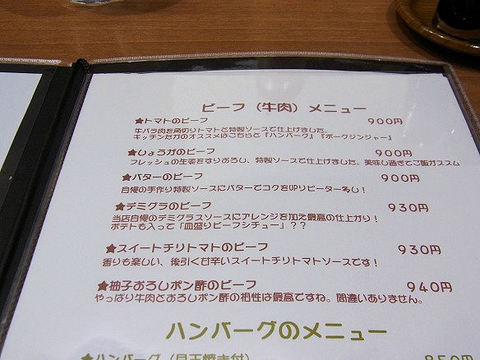 ビーフ（牛肉）メニュー
★トマトのビーフ 900円
牛バラ肉を角切りトマトと特製ソースで仕上げました。
キッチンたかのオススメはこちらと『ハンバーグ』『ポークジンジャー』
★しょうがのビーフ 900円
フレッシュの生姜をすりおろし、特製ソースで仕上げました、美味し過ぎてご飯がススム
★バターのビーフ 900円
自慢の手作り特製ソースにバターでコクをUPリピーター多し！
★デミグラのビーフ 930円
当店自慢のデミグラスソースにアレンジを加え最高の仕上がり！
ポテトも入って「皿盛りビーフシチュー」？？
★スイートチリトマトのビーフ 930円
香りも楽しい、後引く甘辛いスイートチリトマトソースです！
★柚子おろしポン酢のビーフ 940円
やっぱり牛肉とおろしポン酢の相性は最高ですね。間違いありません。
ハンバーグのメニュー
★ハンバーグ（目玉焼き付） 850円